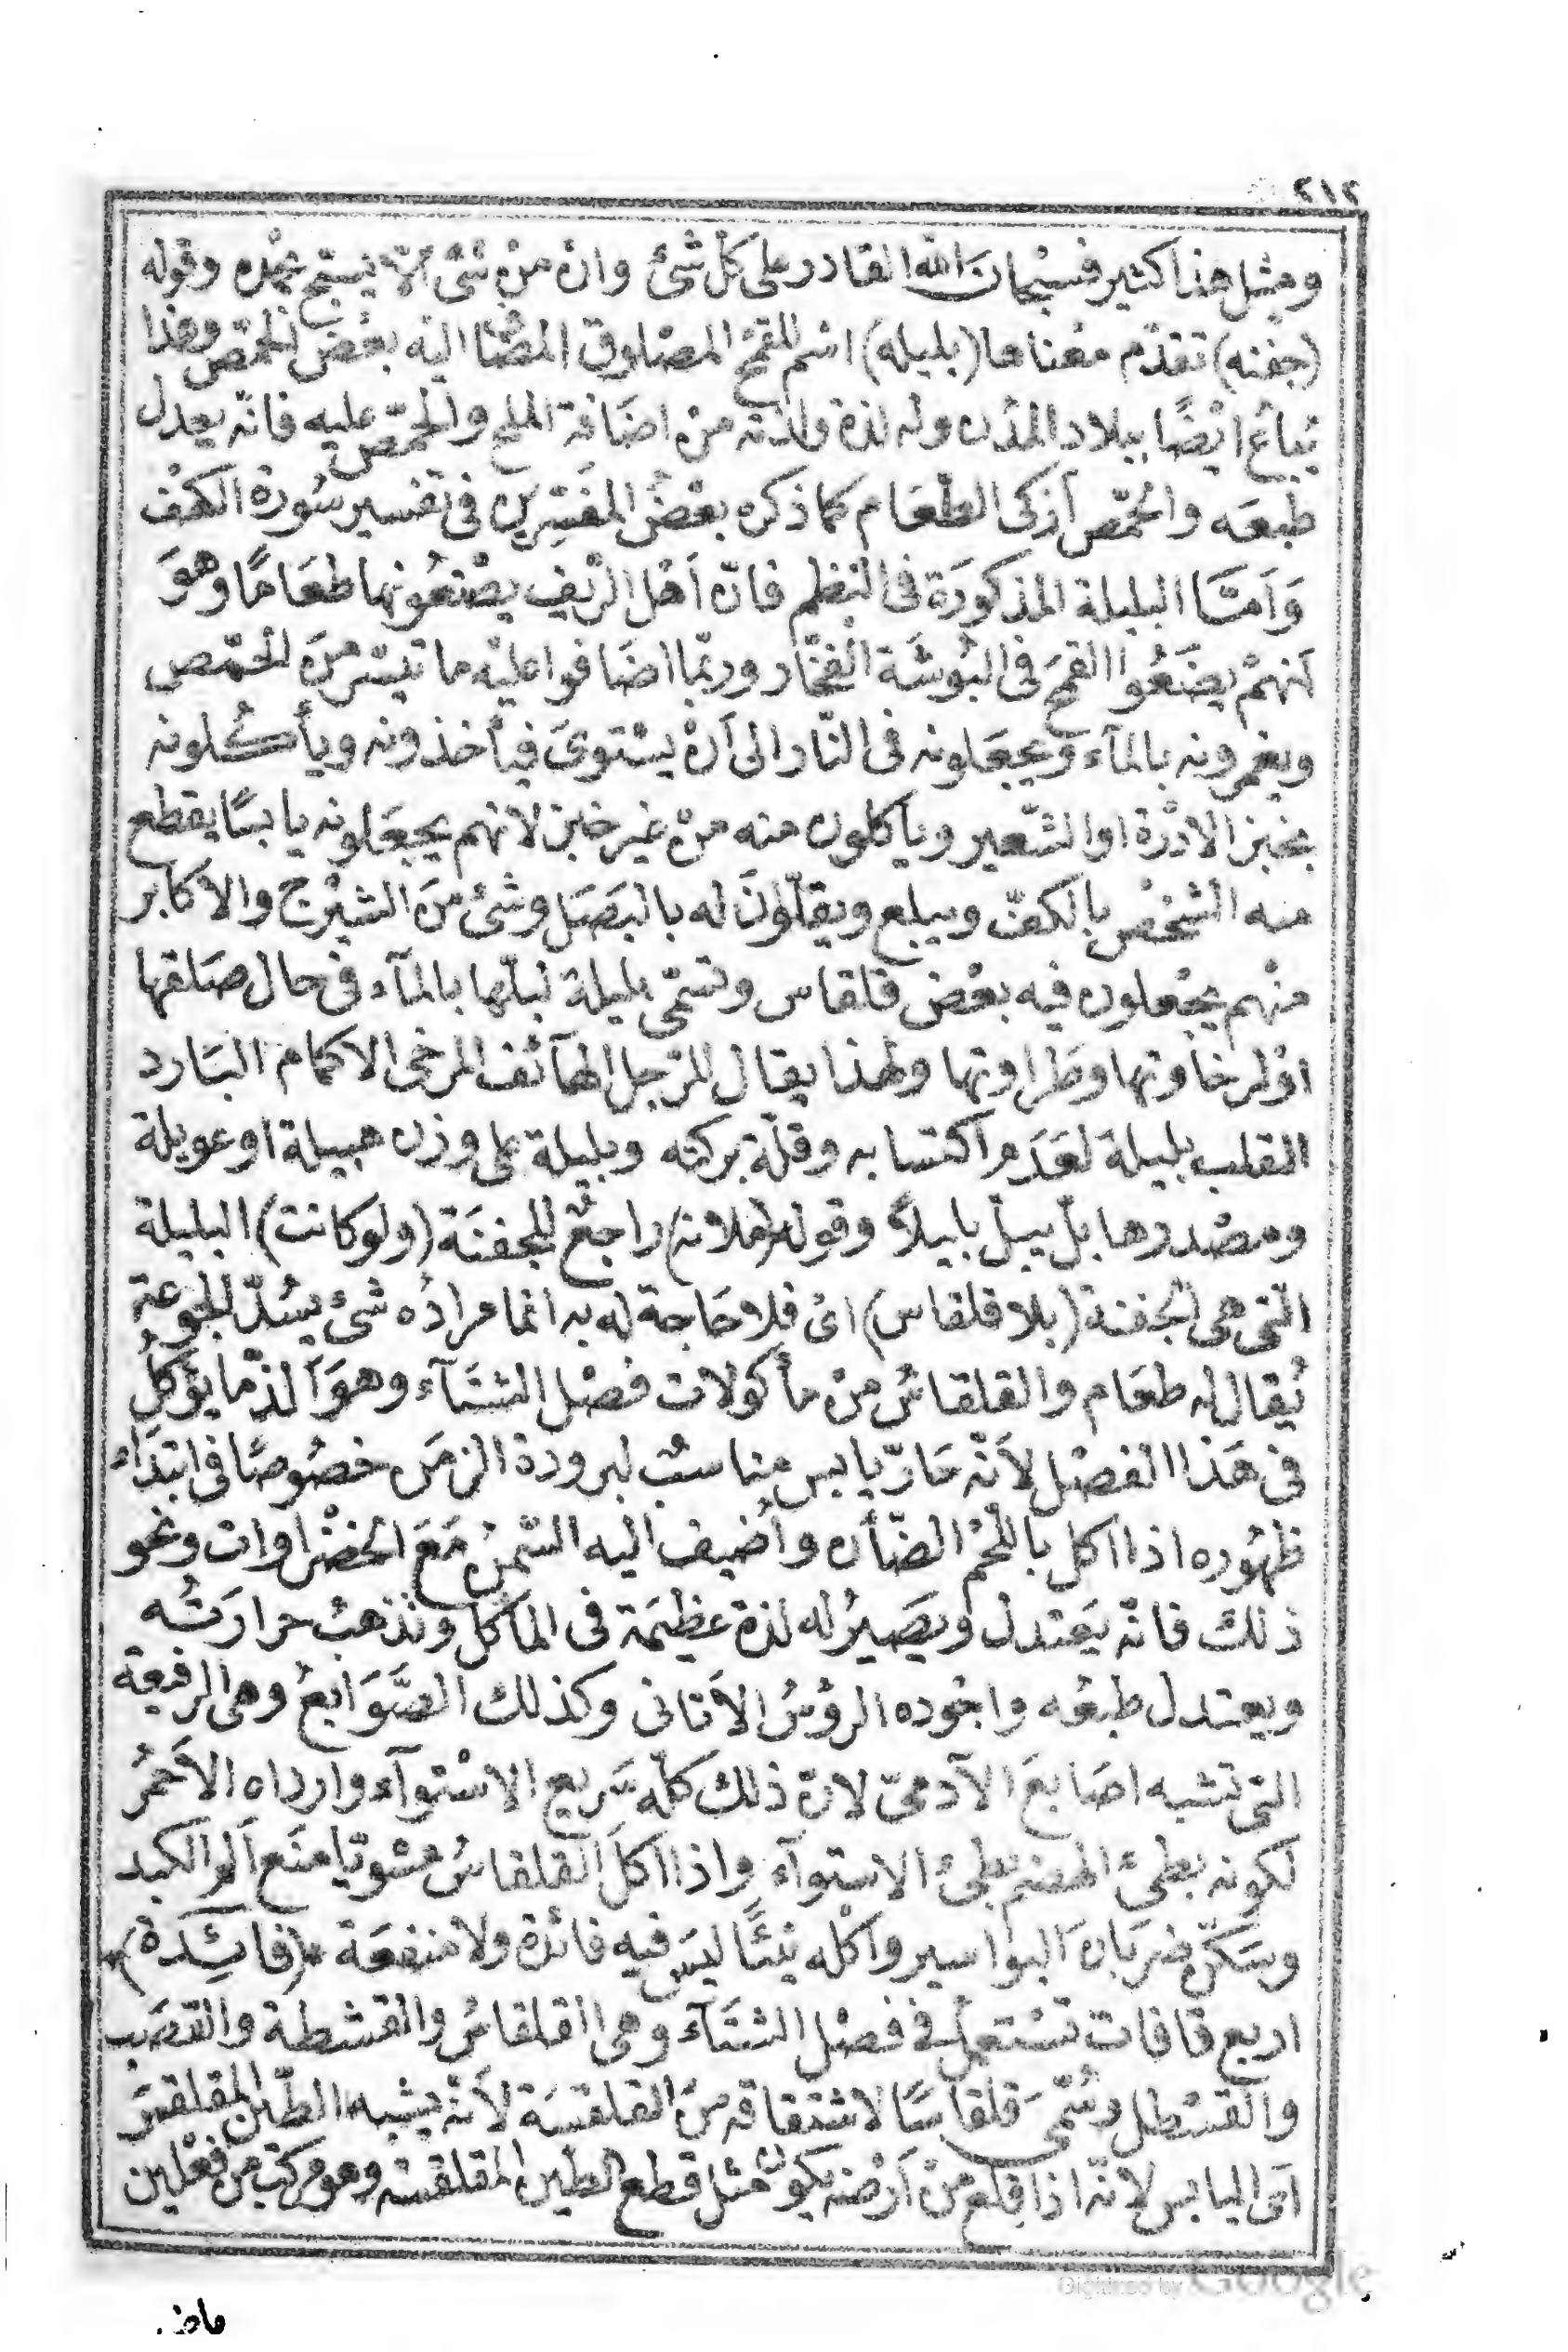 ٢١٢
ومثل هذا كثير فسبحان الله القادر على كل شئ وان من شئ الّا يسبح بحمده وقوله
(جفنه) تقدّم معناها (بليله) اسم للقمح المصلوق المضاف اليه بعض الحمّص وهذا
يُباع ايضًا ببلاد المدُن وله لذة ولذته من اضَافة الملح والحمّص عليه فانّه يعدل
طبعَه والحمّص أزكى الطّعَام كما ذكره بعْض المفسّرين فى تفسير سُورة الكهْف
وَأمّا البليلة المذكورَة فى النظم فانّ أهْل الرّيف يصْنعُونها طعَامًا وهوَ
انهمْ يضَعُوا القمحَ فى البُوشَة الفخّار وربّما اضَافوا عليْه ما تيسّر منَ الحمّص
ويغمرونه بالمآء ويجعَلونه فى النّار الى أنْ يسْتوىَ فيأخذونه ويأكُلونه
بخبز الادْرة او الشّعير وياكلون منه منْ غير خبز لانهم يجعَلونه يابسًا يقطع
منه الشخْص بالكفّ ويبلع ويقلّونَ له بالبَصَل وشئ منَ الشيْرج والاكابر
منْهم يجْعلون فيه بعْض قلقاس وتسَمّى بليلة لبلّها بالمآء فى حال صَلقها
اوْ لرخاوتها وطَراوتها ولهذا يقال للرّجل الهآئف المرخى الاكمام البَارد
القلب بليلة لعَدَم اكتسابه وقلّة بركته وبليلة على وزن هبيلة او عويلة
ومصْدرها بلّ يبلّ بليلاً وقوله (ملانه) راجعٌ للجفنَة (ولو كانت) البليلة
التى هى الجفنة (بلا قلقاس) اىْ فلا حَاجة له به انما مرادُه شئ يسُدّ الجوعة
يُقال له طعَام والقلقاسُ من مأكولات فصْل الشتَآء وهوَ ألذّ ما يؤكلُ
فى هَذا الفصْل لأنّه حَارّ يابس مناسبٌ لبرودة الزمَن خصُوصًا فى ابتدَاء
ظهُوره اذا اكل باللّحْم الضّأن وأضيف اليه السّمنُ مَعَ الخضْراوات ونحو
ذلك فانّه يَعتدل ويصَيرُ له لذة عظيمَة فى المأكل وتذهبُ حرارَتُه
ويعتدل طبعُه واجْوده الرؤسُ الأناثى وكذلك الصّوَابعُ وهى الرفيعة
التى تشبه اصَابعَ الآدمىّ لانّ ذلك كلّه سَريع الاسْتوآء وارداه الأحمرُ
لكونه بطئ الهضم بطئ الاستوآء واذا اكلَ القلقاسُ مشويًّا منَع ألم الكبد
وسَكّن ضرَبان البواسير واكْله نيئًا ليسَ فيه فائدة ولا منفعَة (فائِدَة)
اربع قافات تسْتعمل فى فصْل الشتَآء وهى القلقاسُ والقشطة والقصَب
والقسْطل وسُمّىَ قلقاسًا لاشتقاقه منَ القلقسَة لأنّه يشبه الطّين المقلقسَ
أى اليابس لانّه اذا قلعَ منْ أرْضه يكونُ مثل قطع الطين المقلقسَة وهو مركّب من فعْلين
ماض
Digitized by Google